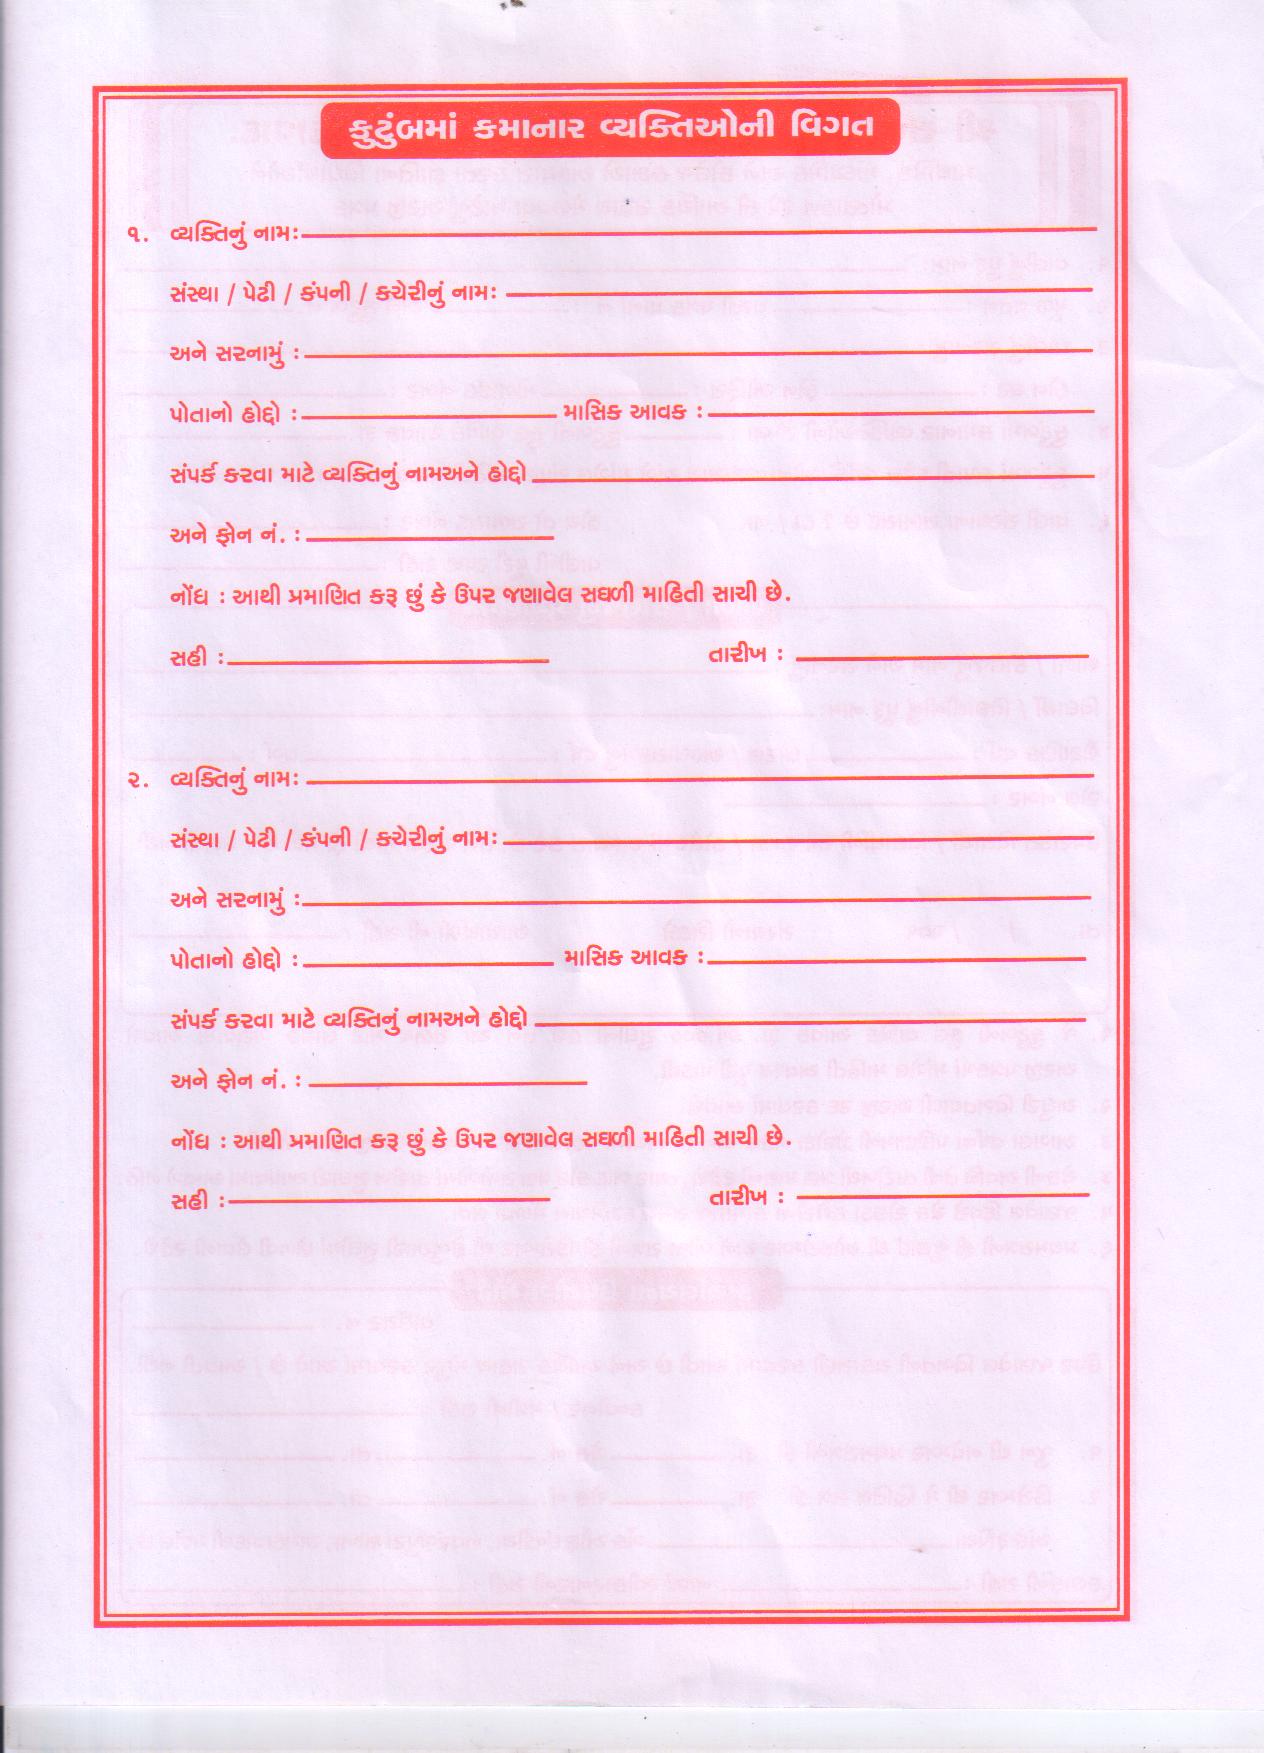 કુટુંબમાં કમાનાર વ્યક્તિઓની વિગત
૧. વ્યક્તિનું નામઃ
સંસ્થા / પેઢી / કંપની / કચેરીનું નામઃ
અને સરનામું :
પોતાનો હોદ્દો : માસિક આવક :
સંપર્ક કરવા માટે વ્યક્તિનું નામઅને હોદ્દો
અને ફોન નં. :
નોંધ : આથી પ્રમાણિત કરૂ છું કે ઉપર જણાવેલ સઘળી માહિતી સાચી છે.
સહી : તારીખ :
૨. વ્યક્તિનું નામઃ
સંસ્થા / પેઢી / કંપની / કચેરીનું નામઃ
અને સરનામું :
પોતાનો હોદ્દો : માસિક આવક :
સંપર્ક કરવા માટે વ્યક્તિનું નામઅને હોદ્દો
અને ફોન નં. :
નોંધ : આથી પ્રમાણિત કરૂ છું કે ઉપર જણાવેલ સઘળી માહિતી સાચી છે.
સહી : તારીખ :